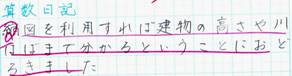 算数日記
縮図を利用すれば建物の高さや川
はばまで分かるということにおど
ろきました